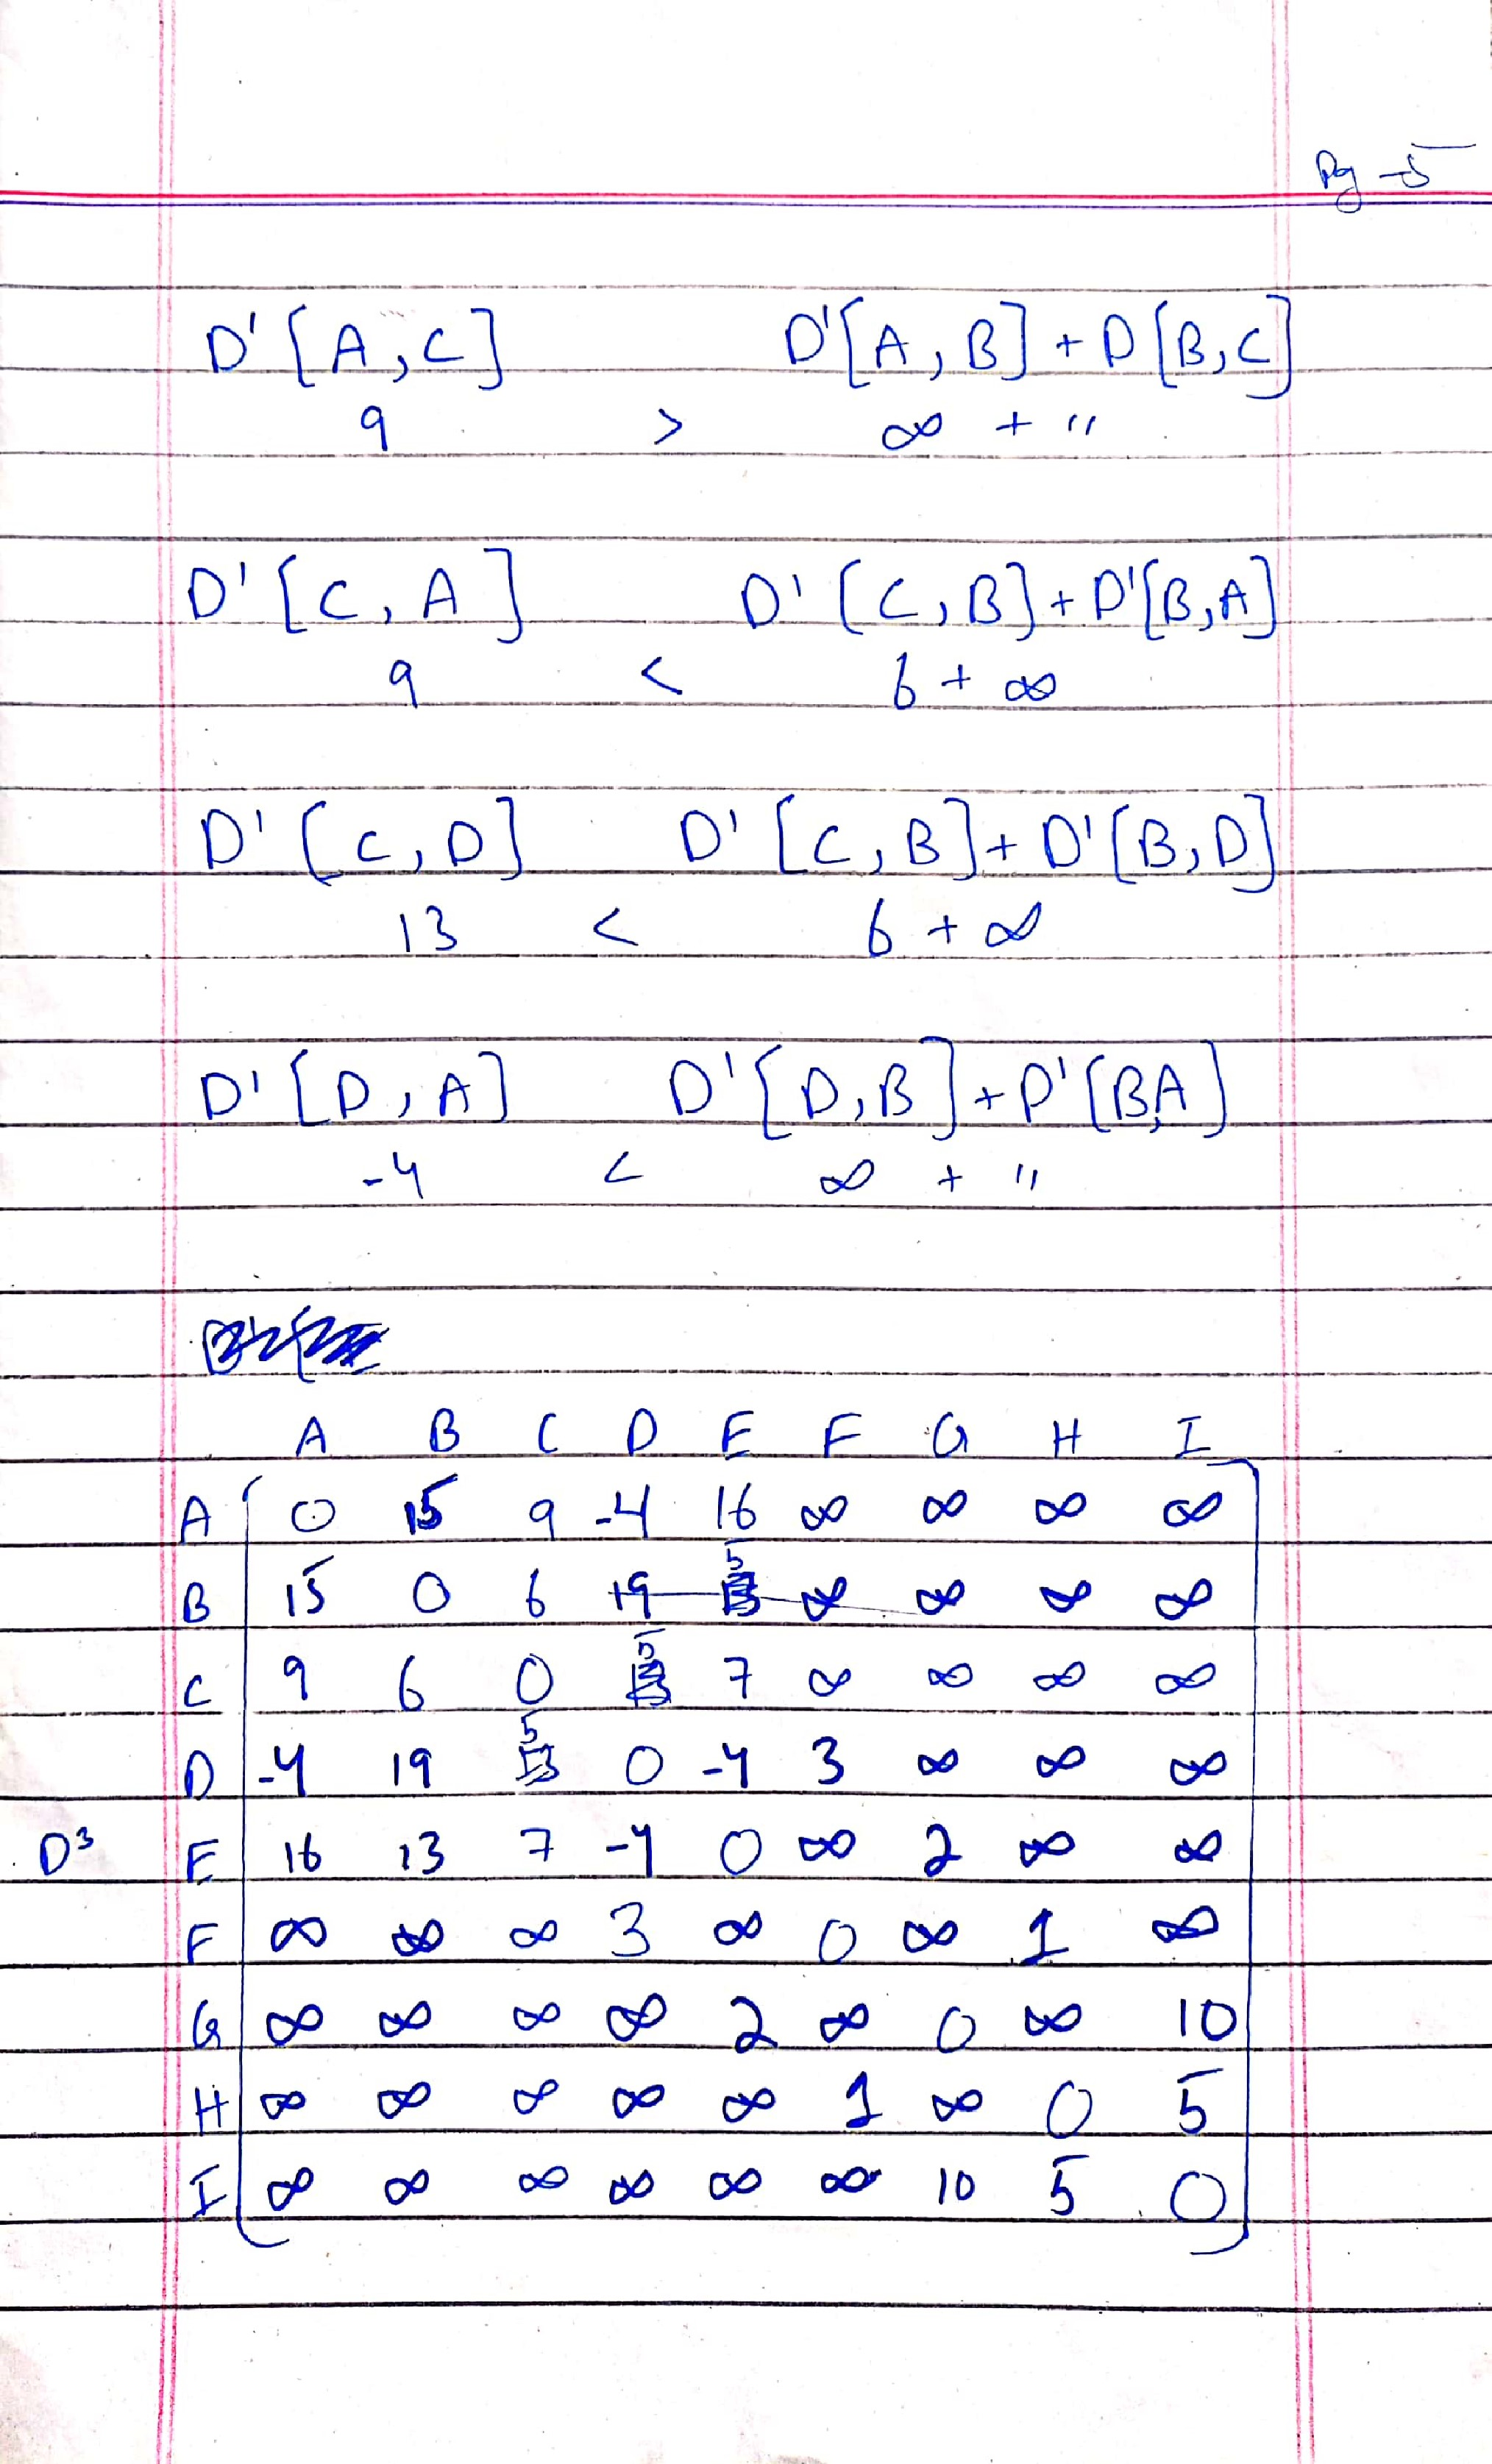 Pg -5
D' [A, C] D'[A, B] + D[B, C]
9 > ∞ + "
D' [C, A] D' [C, B] + D'[B, A]
9 < 6 + ∞
D' [C, D] D' [C, B] + D'[B, D]
13 < 6 + ∞
D' [D, A] D' [D, B] + D' [B,A]
-4 < ∞ + "
A B C D E F G H I
A 0 15 9 -4 16 ∞ ∞ ∞ ∞
B 15 0 6 19 5 ∞ ∞ ∞ ∞
C 9 6 0 5 7 ∞ ∞ ∞ ∞
D -4 19 5 0 -4 3 ∞ ∞ ∞
D³ E 16 13 7 -4 0 ∞ 2 ∞ ∞
F ∞ ∞ ∞ 3 ∞ 0 ∞ 1 ∞
G ∞ ∞ ∞ ∞ 2 ∞ 0 ∞ 10
H ∞ ∞ ∞ ∞ ∞ 1 ∞ 0 5
I ∞ ∞ ∞ ∞ ∞ ∞ 10 5 0